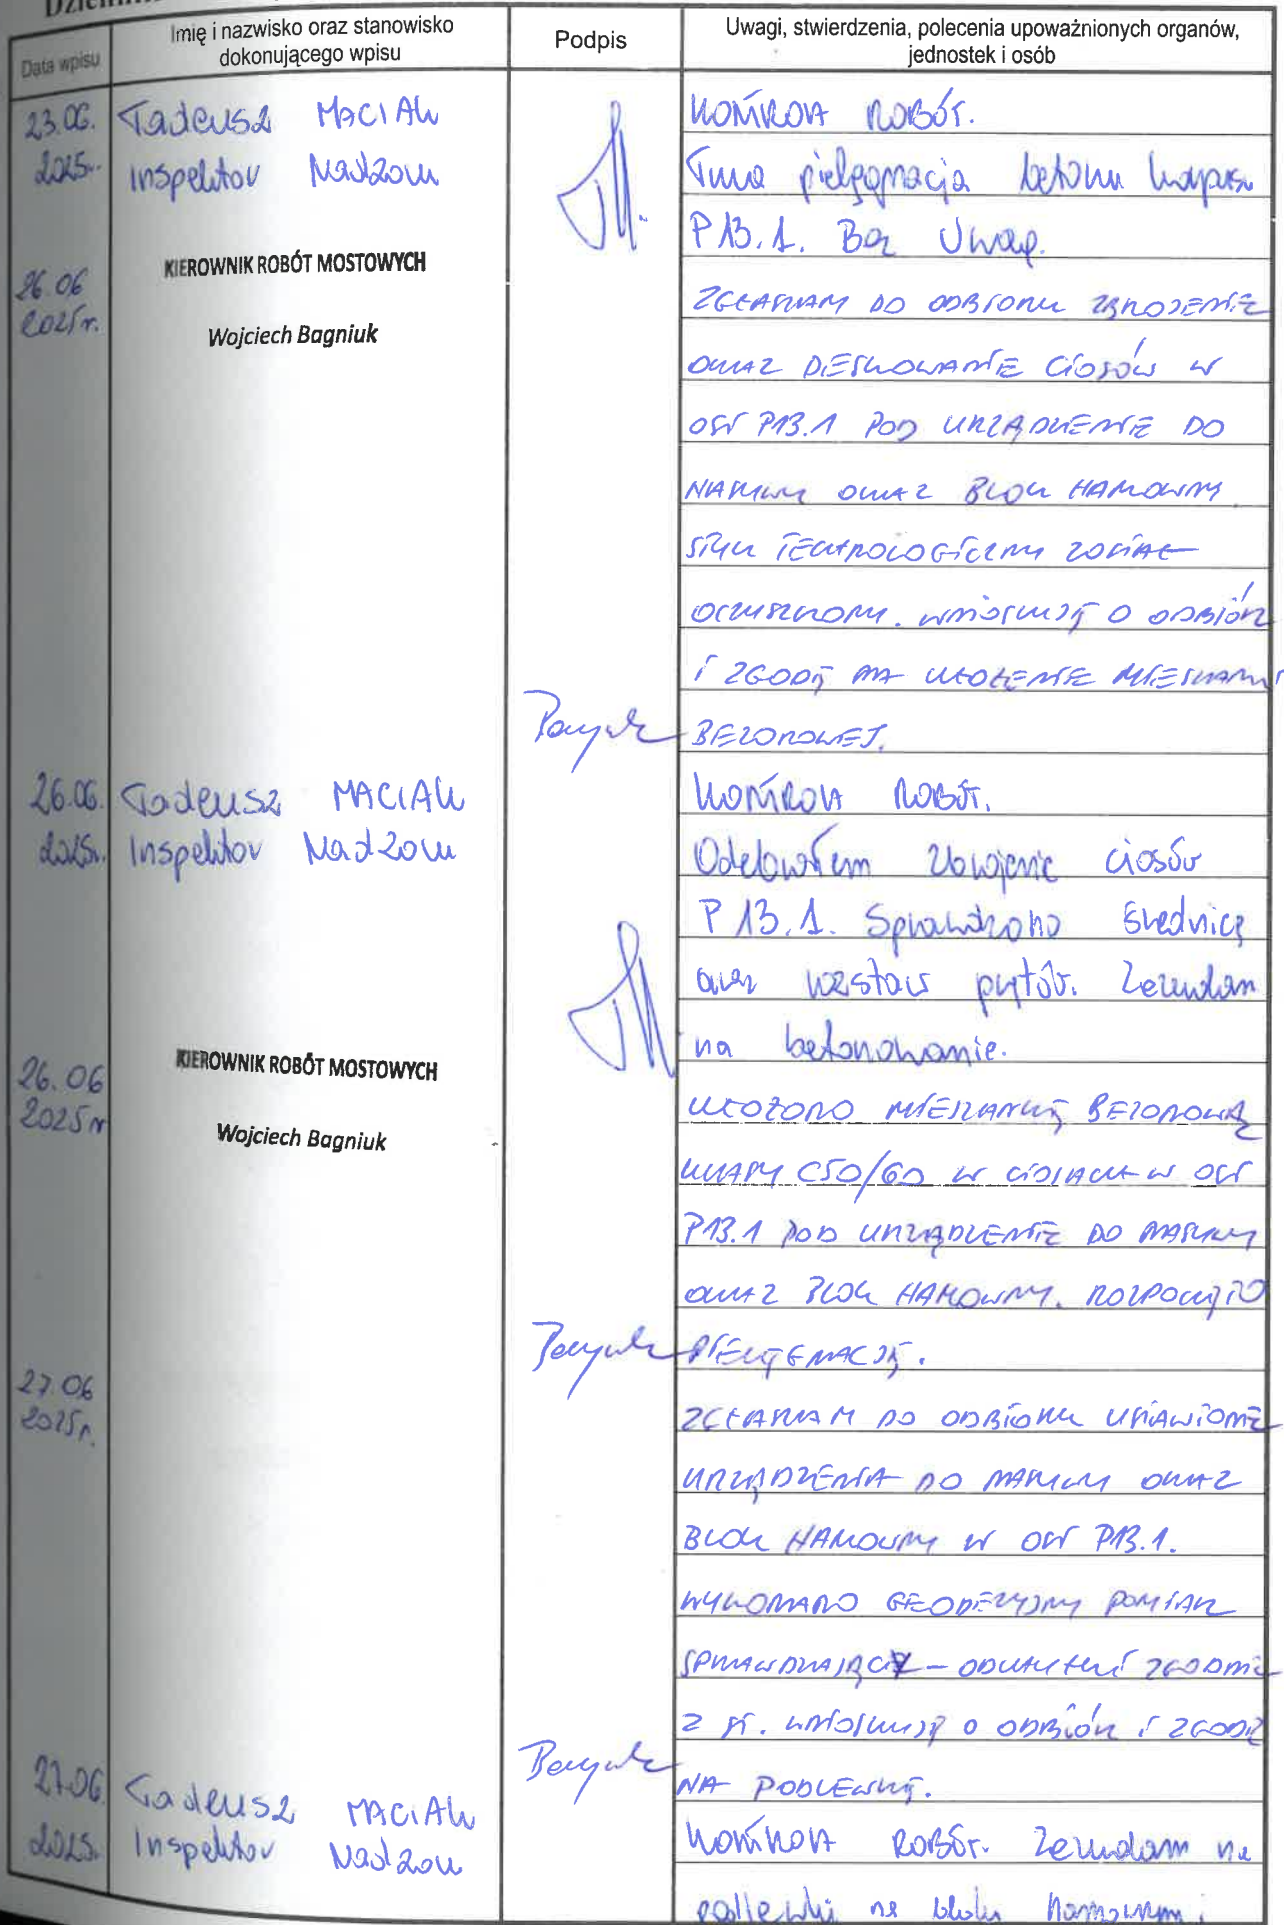 Data wpisu
Imię i nazwisko oraz stanowisko
dokonującego wpisu
Podpis
Uwagi, stwierdzenia, polecenia upoważnionych organów,
jednostek i osób
23.06. Tadeusz MACIAK KONTROLA ROBÓT.
2025r. Inspektor Nadzoru Trwa pielęgnacja betonu korpusu
P13.1. Bez Uwag.
26.06 KIEROWNIK ROBÓT MOSTOWYCH
2025r. Wojciech Bagniuk
ZGŁASZAM DO ODBIORU ZBROJENIE
ORAZ DESKOWANIE CIOSÓW W
OSI P13.1 POD URZĄDZENIE DO
NASUWU ORAZ BLOK HAMOWNY.
STYK TECHNOLOGICZNY ZOSTAŁ
OCZYSZCZONY. WNIOSKUJĘ O ODBIÓR
I ZGODĘ NA UŁOŻENIE MIESZANKI
BETONOWEJ.
26.06. Tadeusz MACIAK KONTROLA ROBÓT.
2025r. Inspektor Nadzoru Odebrałem zbrojenie ciosów
P13.1. Sprawdzono średnicę
oraz rozstaw prętów. Zezwalam
na betonowanie.
26.06 KIEROWNIK ROBÓT MOSTOWYCH
2025r Wojciech Bagniuk
UŁOŻONO MIESZANKĘ BETONOWĄ
KLASY C50/60 W CIOSACH W OSI
P13.1 POD URZĄDZENIE DO NASUWU
ORAZ BLOK HAMOWNY. ROZPOCZĘTO
PIELĘGNACJĘ.
27.06
2025r.
ZGŁASZAM DO ODBIORU USTAWIONE
URZĄDZENIA DO NASUWU ORAZ
BLOK HAMOWNY W OSI P13.1.
WYKONANO GEODEZYJNY POMIAR
SPRAWDZAJĄCY - ODCHYŁKI ZGODNIE
Z ST. WNIOSKUJĘ O ODBIÓR I ZGODĘ
NA PODLEWKĘ.
27.06. Tadeusz MACIAK
2025. Inspektor Nadzoru
KONTROLA ROBÓT. Zezwalam na
podlewki na bloku hamownym i